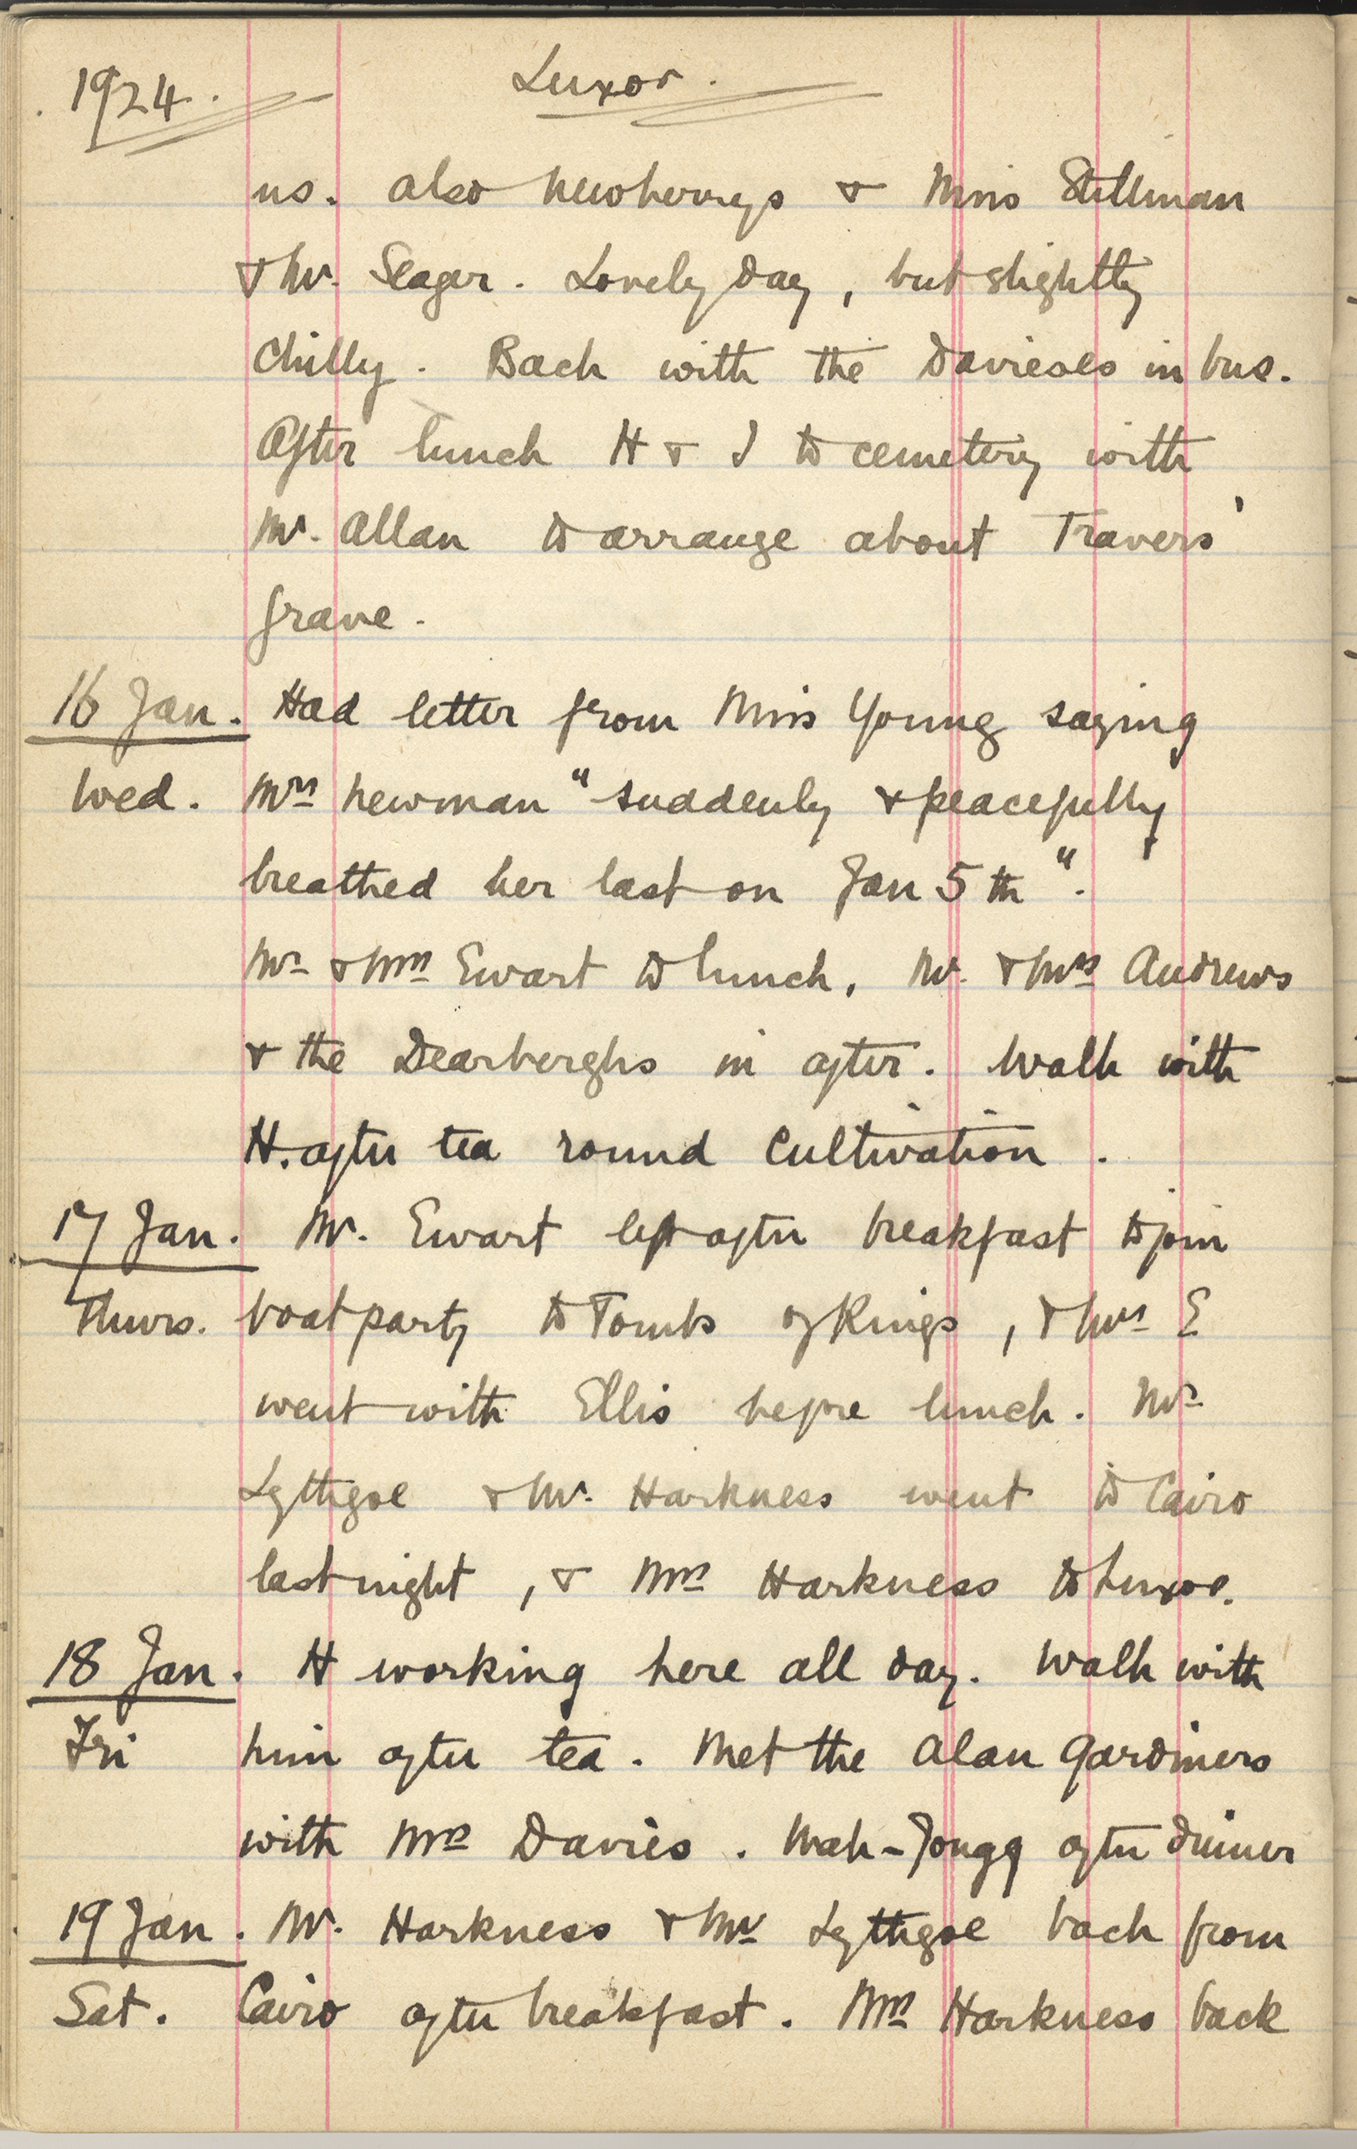 1924. Luxor.
us. Also Newberrys & Miss Stillman
& Mr. Seager. Lovely day, but slightly
chilly. Back with the Davieses in bus.
After lunch H & I to cemetery with
Mr. Allan to arrange about Travers'
grave.
16 Jan. Had letter from Miss Young saying
Wed. Mrs Newman "suddenly & peacefully
breathed her last on Jan 5th".
Mr & Mrs Ewart to lunch, Mr. & Mrs Andrews
& the Dearberghs in after. Walk with
H. after tea round cultivation.
17 Jan. Mr. Ewart left after breakfast to join
Thurs. boat party to Tombs of Kings, & Mrs E
went with Ellis before lunch. Mr
Lythgoe & Mr. Harkness went to Cairo
last night, & Mrs Harkness to Luxor.
18 Jan. H working here all day. Walk with
Fri him after tea. Met the Alan Gardiners
with Mrs Davies. Mah-Jongg after dinner
19 Jan. Mr. Harkness & Mr Lythgoe back from
Sat. Cairo after breakfast. Mrs Harkness back